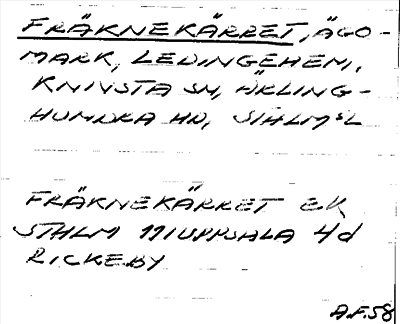 FRÄKNEKÄRRET, ÄGO-
MARK, LEDINGEHEM,
KNIVSTA SN, ÄRLING-
HUNDRA HD, STHLMS L
FRÄKNEKÄRRET ek
STHLM 11I UPPSALA 4d
RICKEBY
A.F. 58